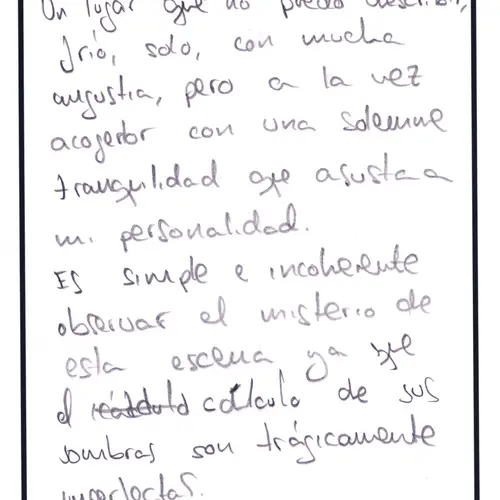 Un lugar que no puedo describir,
frío, solo, con mucha
angustia, pero a la vez
acogedor con una solemne
tranquilidad que asusta a
mi personalidad.
Es simple e incoherente
observar el misterio de
esta escena ya que
el cálculo de sus
sombras son trágicamente
imperfectas.